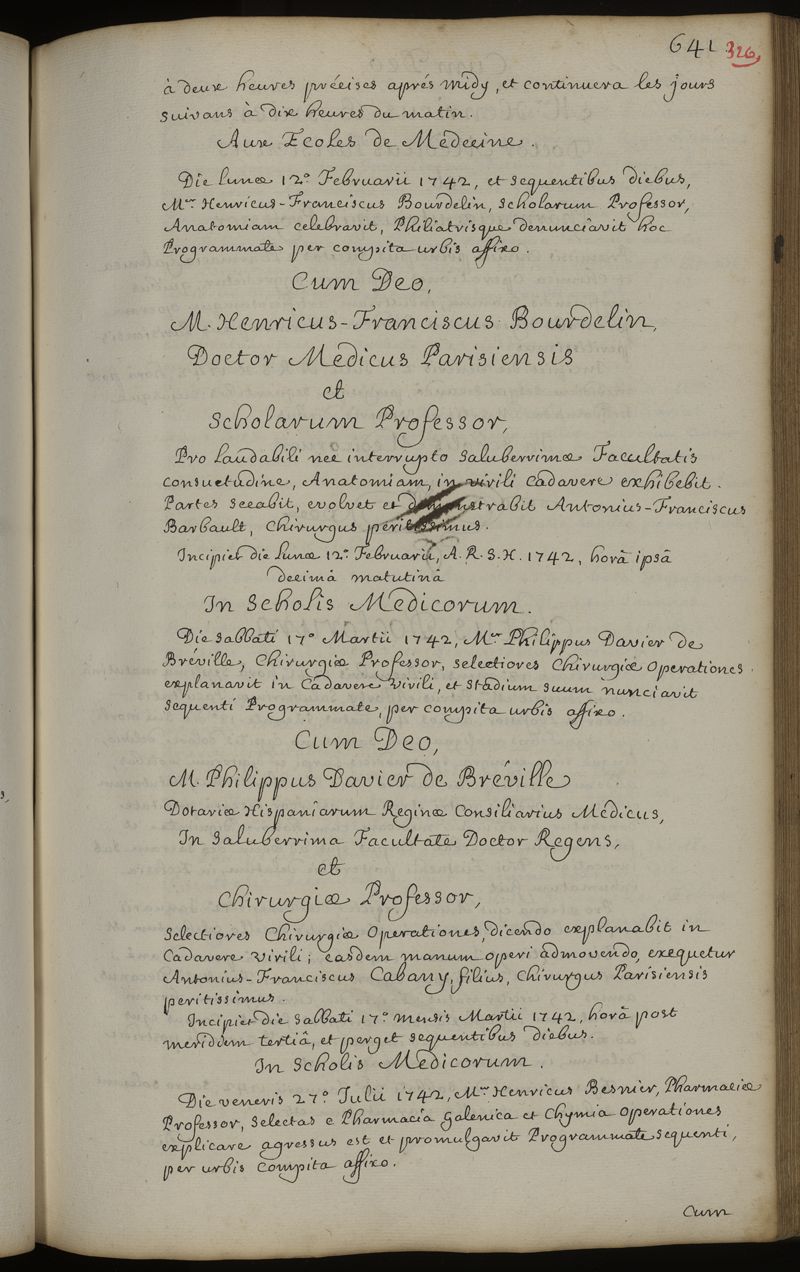 641. 326
à deux heures précises aprés midy, et continuera les jours
suivans à dix heures du matin.
Aux Ecoles de Médecine.
Die lunæ 12.º Februarii 1742, et sequentibus diebus,
M.er Henricus-Franciscus Bourdelin, Scholarum Professor,
Anatomiam celebravit, Philiatrisque denunciavit hoc
Programmate per compita urbis affixo.
Cum Deo,
M. Henricus-Franciscus Bourdelin,
Doctor Medicus Parisiensis
et
Scholarum Professor,
Pro laudabili nec interrupto saluberrimæ Facultatis
consuetudine, Anatomiam, in virili cadavere exhibebit.
Partes secabit, evolvet et demonstrabit Antonius-Franciscus
Barbault, Chirurgus peritissimus.
Incipiet die lunæ 12.º Februarii, A. R. S. H. 1742, horâ ipsâ
decimâ matutinâ
In Scholis Medicorum.
Die Sabbati 17.º Martii 1742, M.er Philippus Davier de
Bréville, Chirurgiæ Professor, selectiores Chirurgiæ operationes
explanavit in Cadavere virili, et stadium suum nunciavit
sequenti Programmate, per compita urbis affixo.
Cum Deo,
M. Philippus Davier de Bréville
Dotariæ Hispaniarum Reginæ Consiliarius Medicus,
In Saluberrima Facultate Doctor Regens,
et
Chirurgiæ Professor,
Selectiores Chirurgiæ Operationes, dicendo explanabit in
Cadavere virili; easdem manum operi admovendo, exequetur
Antonius-Franciscus Cabany, filius, Chirurgus Parisiensis
peritissimus.
Incipiet die Sabbati 17.º mensis Martii 1742, horâ post
meridiem tertiâ, et perget sequentibus diebus.
In Scholis Medicorum.
Die veneris 27.º Julii 1742, M.er Henricus Besnier, Pharmaciæ
Professor, selectas e Pharmacia galenica et Chymia operationes
explicare agressus est et promulgavit Programmate sequenti,
per urbis compita affixo.
Cum